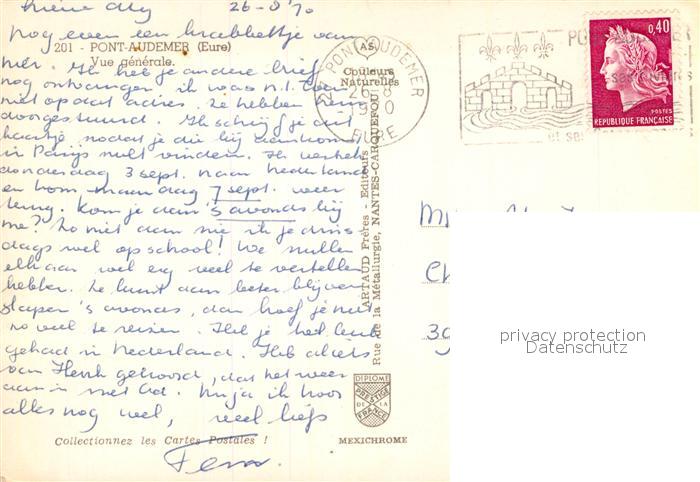 26-8-70
Nog even een krabbeltje van
201 - PONT-AUDEMER (Eure)
Vue générale.
hier. Ik heb je andere brief
nog ontvangen. ik was n.l. toen
niet op dat adres. Ze hebben hem
doorgestuurd. Ik schrijf je dit
kaartje, zodat je die bij aankomst
in Parijs zult vinden. Ik vertrek
donderdag 3 sept. naar Nederland
en kom maandag 7 sept. weer
terug. Kom je dan 's avonds bij
me? Zo niet dan zie ik je dins
dags wel op school! We zullen
elkaar wel erg veel te vertellen
hebben. Je kunt dan beter blijven
slapen 's avonds, dan hoef je niet
zo veel te reizen. Heb je het leuk
gehad in Nederland. Heb al iets
van Henk gehoord, dat het weer
aan is met Ad. Nu ja ik hoor
alles nog wel, veel liefs
Collectionnez les Cartes Postales !
AS
Couleurs
Naturelles
ARTAUD Frères - Editeurs
Rue de la Métallurgie, NANTES-CARQUEFOU
DIPLOME
PRESTIGE
DE LA
FRANCE
MEXICHROME
27 PONT AUDEMER
26-8
EURE
0,40
POSTES
REPUBLIQUE FRANÇAISE
39
privacy protection
Datenschutz